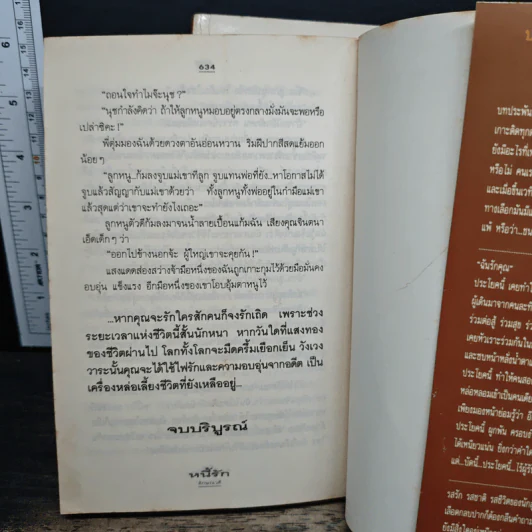 634
"ถอนใจทำไมจ๊ะนุช ?"
"นุชกำลังคิดว่า ถ้าให้ลูกหนูหมอบอยู่ตรงกลางมั่งมันจะพอหรือ
เปล่าซิคะ !"
พี่ตุ่มมองฉันด้วยดวงตาอันอ่อนหวาน ริมฝีปากสีสดแย้มออก
น้อย ๆ
"ลูกหนู..ก้มลงจูบแม่เขาทีลูก จูบแทนพ่อที่ยัง..หาโอกาสไม่ได้
จูบแล้วสัญญากับแม่เขาด้วยว่า ทั้งลูกหนูทั้งพ่ออยู่ในกำมือแม่เขา
แล้วสุดแต่ว่าเขาจะทำยังไงเถอะ"
ลูกหนูตัวดีก้มลงมาจนน้ำลายเปื้อนแก้มฉัน เสียงคุณจินตนา
เอ็ดเด็ก ๆ ว่า
"ออกไปข้างนอกจ้ะ ผู้ใหญ่เขาจะคุยกัน !"
แสงแดดส่องสว่างจ้ามือหนึ่งของฉันถูกเกาะกุมไว้ด้วยมือมั่นคง
อบอุ่น แข็งแรง อีกมือหนึ่งของเขาโอบอุ้มตาหนูไว้
...หากคุณจะรักใครสักคนก็จงรักเถิด เพราะช่วง
ระยะเวลาแห่งชีวิตนี้สั้นนักหนา หากวันใดที่แสงทอง
ของชีวิตผ่านไป โลกทั้งโลกจะมืดครึ้มเยือกเย็น วังเวง
วาระนั้นคุณจะได้ใช้ไฟรักและความอบอุ่นจากอดีต เป็น
เครื่องหล่อเลี้ยงชีวิตที่ยังเหลืออยู่...
จบบริบูรณ์
หนี้รัก
บทประพัน
เกาะติดทุก
ยังมีอะไรที่เ
หรือไม่ คนเร
และเมื่อขึ้นเวที
ทางเลือกมันมี
แพ้ หรือว่า...ชน
"ฉันรักคุณ"
ประโยคนี้ เคยทำใ
ผู้เดินมาจากคนละทิ
ร่วมต่อสู้ ร่วมสุข ร่ว
เคยหัวเราะร่วมกันใน
และซบหน้าหลั่งน้ำตาแ
ประโยคนี้ ทำให้คนสอ
หล่อหลอมเข้าเป็นคนเดีย
เพียงมองหน้าย่อมรู้ว่า อี
ประโยคนี้ ผูกพัน ครอบครั
ได้เหนียวแน่น ยิ่งกว่าคำใด
แต่...บัดนี้...ประโยค...นี้...ไร้ผู้รั
รสรัก รสชาติ รสชีวิตของนัก
เลือดกลบปากก็ต้องกลืนคำฉาบ